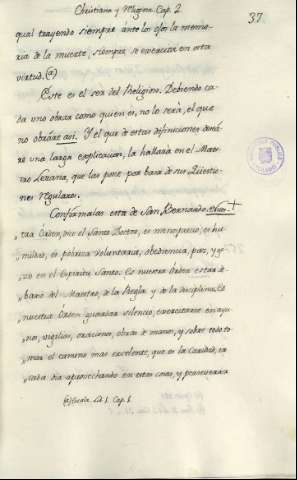 Christiana y Religiosa. Cap. 2
37
qual trayendo siempre ánte los ojos la memo-
ria de la muerte, siempre se exercita en esta
virtud. (a)
Este es el ser del Religioso. Debiendo ca-
da uno obrar como quien es, no lo sería, el que
no obráre así. Y el que de estas difiniciones
re una larga explicacion, la hallará en el Maes-
tro Lezana, que las pone por basa de sus Qüestio-
nes regulares.
Confírmalas esta de San Bernardo.
tra Orden, dice el Santo Doctor, es menosprecio, es hu-
mildad, es pobreza voluntaria, obediencia, paz, y go-
zo en el Espiritu Santo. Es nuestra Orden estar de-
baxo del Maestro, de la Regla y de la disciplina. Es
nuestra Orden guardar silencio, exercitarse en ayu-
nos, vigilias, oraciones, obras de manos, y sobre todo to-
mar el camino mas excelente, que es la Caridad, en
cada dia aprovechando en estas cosas, y perseverar
(a) Escala. Lib. 1. Cap. 1.